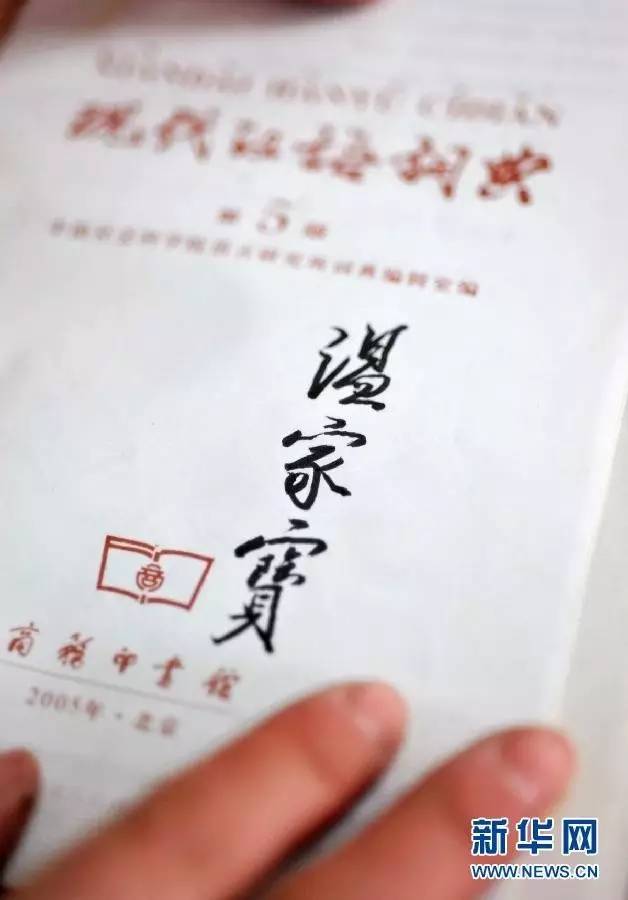 XIANDAI HANYU CIDIAN
现代汉语词典
第5版
中国社会科学院语言研究所词典编辑室编
温家寶
商
商務印書館
2005年·北京
新华网
WWW.NEWS.CN